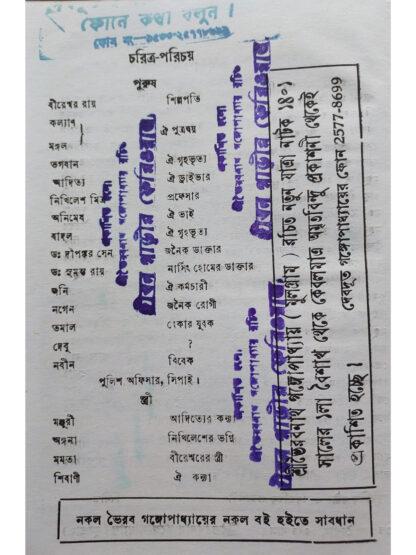 ফোনে কথা বলুন।
ফোন নং-
চরিত্র-পরিচয়
পুরুষ
ধীরেশ্বর রায় শিল্পপতি
কল্যাণ
মঙ্গল ঐ পুত্রদ্বয়
ভগবান ঐ গৃহভৃত্য
আদিত্য ঐ ড্রাইভার
নিখিলেশ মিত্র প্রফেসার
অনিমেষ ঐ ভাই
বাহুল ঐ গৃহভৃত্য
ডঃ দীপঙ্কর সেন জনৈক ডাক্তার
ডঃ সুমন্ত রায় নার্সিং হোমের ডাক্তার
জনি ঐ কর্মচারী
নগেন জনৈক রোগী
তমাল বেকার যুবক
দেবু ?
নবীন বিবেক
পুলিশ অফিসার, সিপাই।
স্ত্রী
মঞ্জুরী আদিত্যের কন্যা
অঙ্গনা নিখিলেশের ভগ্নি
মমতা ধীরেশ্বরের স্ত্রী
শিবাণী ঐ কন্যা
শ্রীভৈরবনাথ গঙ্গোপাধ্যায় ( মূলগ্রাম ) রচিত নতুন যাত্রা নাটক ১৪০১
সালের ১লা বৈশাখ থেকে কেবলমাত্র অমৃতবিন্দু প্রকাশনী থেকেই
প্রকাশিত হচ্ছে। দেবদূত গঙ্গোপাধ্যায়ের ফোন 2577-8699
প্রকাশিত হলো
শ্রীভৈরবনাথ গঙ্গোপাধ্যায় রচিত
প্রকাশিত হলো
শ্রীভৈরবনাথ গঙ্গোপাধ্যায় রচিত
প্রকাশিত হলো
শ্রীভৈরবনাথ গঙ্গোপাধ্যায় রচিত
নকল ভৈরব গঙ্গোপাধ্যায়ের নকল বই হইতে সাবধান